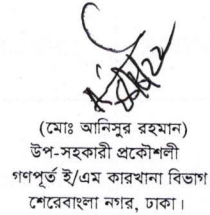 (মোঃ আনিসুর রহমান)
উপ-সহকারী প্রকৌশলী
গণপূর্ত ই/এম কারখানা বিভাগ
শেরেবাংলা নগর, ঢাকা।